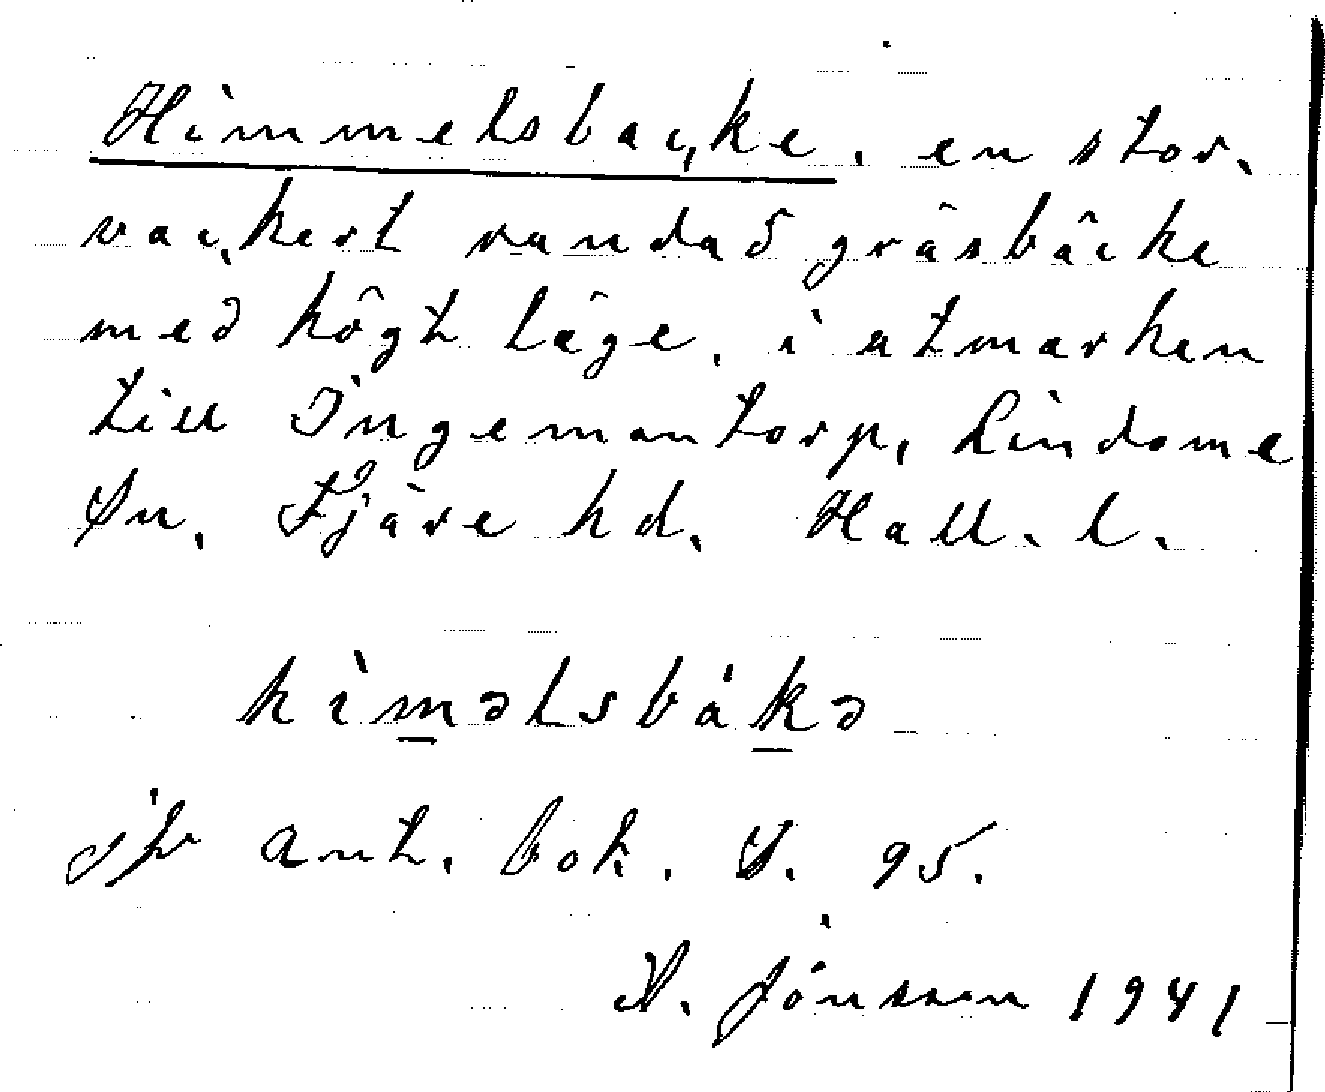 Himmelsbacke. en stor.
vackert rundad gräsbäcke
med högt läge, i utmarken
till Ingemantorp, Lindome
Sn. Fjäre hd. Hall. l.
himəlsbákə
jfr ant. bok. S. 95.
N. Jönsson 1941